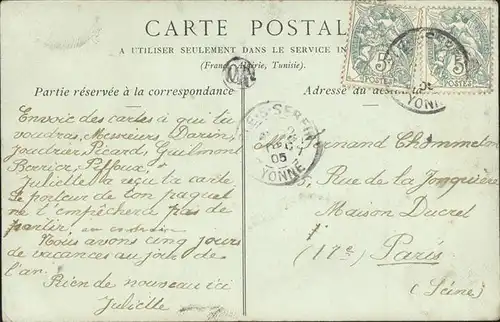 CARTE POSTALE
A UTILISER SEULEMENT DANS LE SERVICE
(France, Algérie, Tunisie).
Partie réservée à la correspondance
Adresse du
Envoie des cartes à qui tu
voudras, Messieurs Darin,
Picard, Guilmont
Juliette a reçu ta carte
Le porteur de ton paquet
ne t'empêchera pas de
partir,
Nous avons cinq jours
de vacances au jour de
l'an.
Rien de nouveau ici
Juliette
5
POSTES
5
POSTES
05
YONNE
05
YONNE
Fernand Chommeton
Rue de la Jonquière
Maison Ducret
(17e) Paris
(Seine)